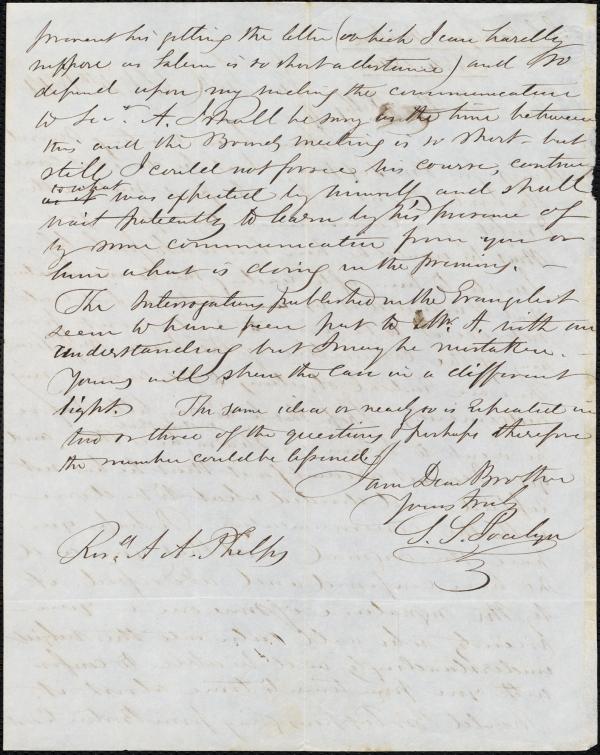 prevent his getting the letter (which I can hardly
suppose as Salem is so short a distance) and so
depend upon my making the communication
to Secy. A. I shall be sorry as the time between
this and the Board meeting is so short - but
still I could not forsee his course, contrary
to what was expected by himself, and shall
wait patiently to learn by his presence or
by some communication from you or
him what is doing in the premises. —
The Interrogatories published in the Evangelist
seem to have been put to Mr. A. with an
understanding but I may be mistaken. —
Yours will shew the case in a different
light. The same idea or nearly so is repeated in
two or three of the questions, perhaps therefore
the number could be lessened
I am Dear Brother
Yours truly
S. S. Jocelyn
Revd. A. A. Phelps